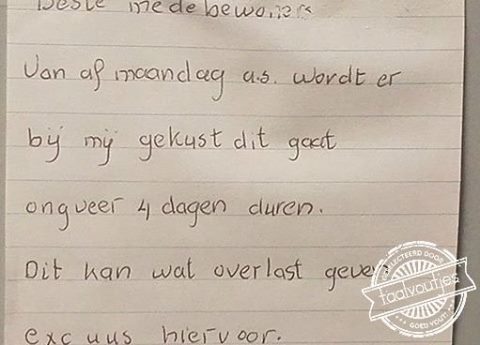 Beste medebewoners
Van af maandag a.s. wordt er
bij mij gekust dit gaat
ongveer 4 dagen duren.
Dit kan wat overlast geven
excuus hiervoor.
GESELECTEERD DOOR
taalvoutjes
GOED FOUT!